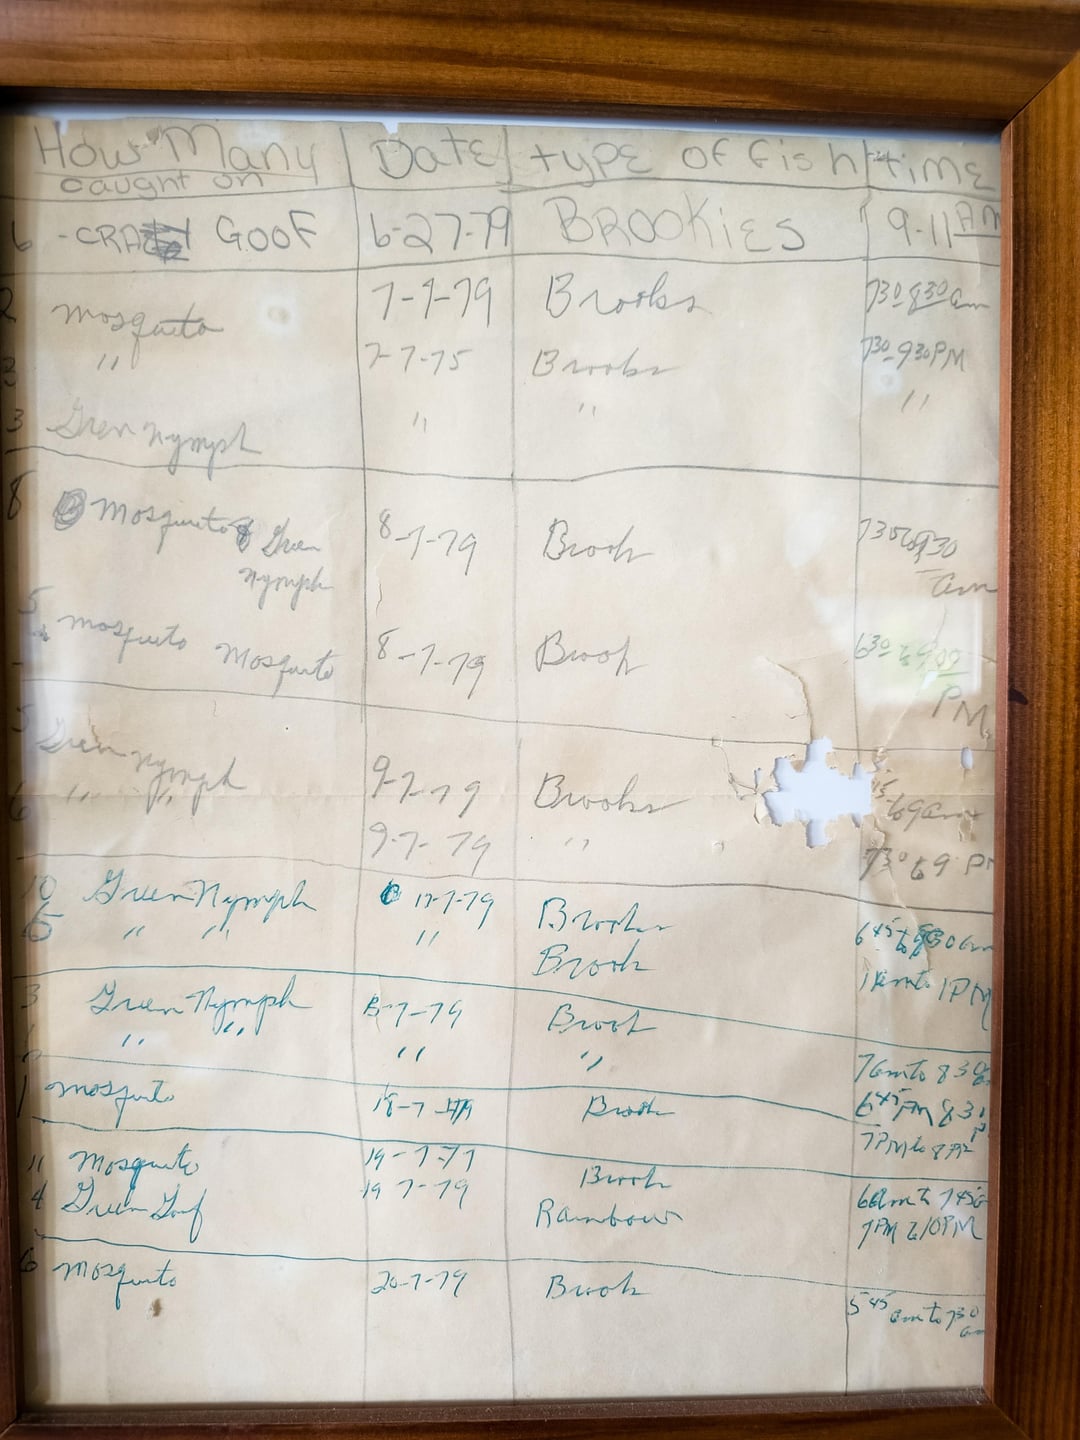 How Many Date type of fish time
caught on
6 -CRAZY GOOF 6-27-79 BROOKiES 9-11 AM
2 mosquito 7-7-79 Brooks 7³⁰ 8³⁰ am
3 " 7-7-75 Brooks 7³⁰-9³⁰ PM
3 Green Nymph " " "
8 Mosquito & Green 8-7-79 Brook 7³⁰ to 9³⁰
Nymph am
5 mosquito Mosquito 8-7-79 Brook 6³⁰ to 9⁰⁰
PM
5 Green Nymph 9-7-79 Brooks to 9am
6 " " 9-7-79 " 7³⁰ to 9 PM
10 Green Nymph 11-7-79 Brooks 6⁴⁵ to 8³⁰ am
5 " " " Brook 11am to 1PM
3 Green Nymph 13-7-79 Brook 7am to 8 30
1 " " " " 6⁴⁵ PM 8 30
1 mosquito 18-7-79 Brook 7PM to 8
11 Mosquito 19-7-77 Brook 6am to 7⁴⁵
4 Green Goof 19 7-79 Rainbow 7PM to 10PM
6 mosquito 20-7-79 Brook 5⁴⁵ am to 7³⁰
am